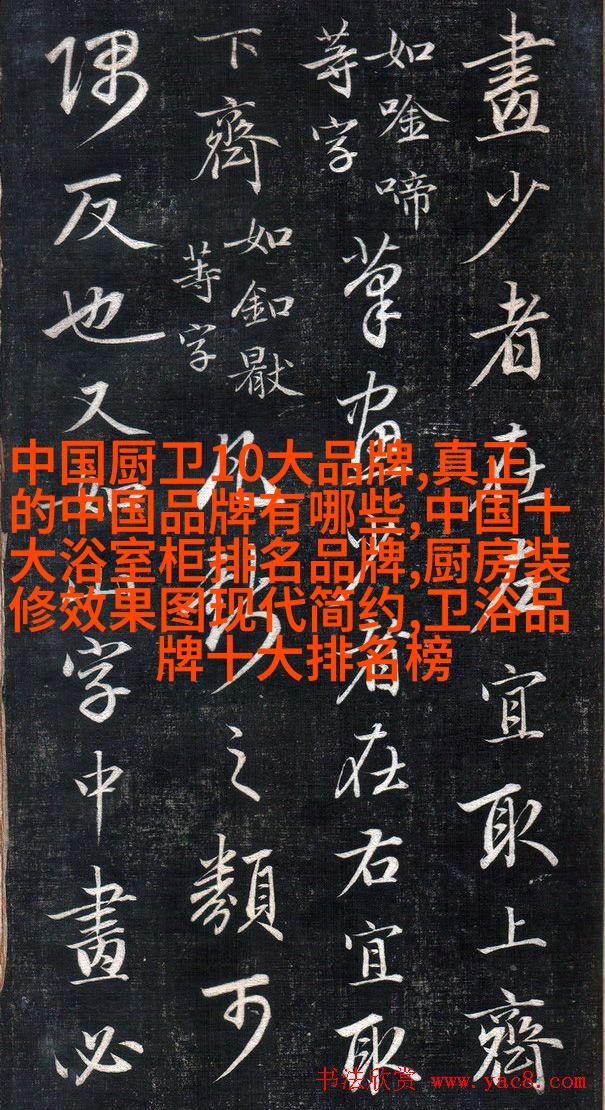 畫少者在左宜取上齊
如唫啼
等字
筆畫少者在右宜取
下齊
如釦
等字
之類可
隅反也又如山字中畫必
中国厨卫10大品牌,真正
的中国品牌有哪些,中国十
大浴室柜排名品牌,厨房装
修效果图现代简约,卫浴品
牌十大排名榜
书法欣赏 www.yac8.com